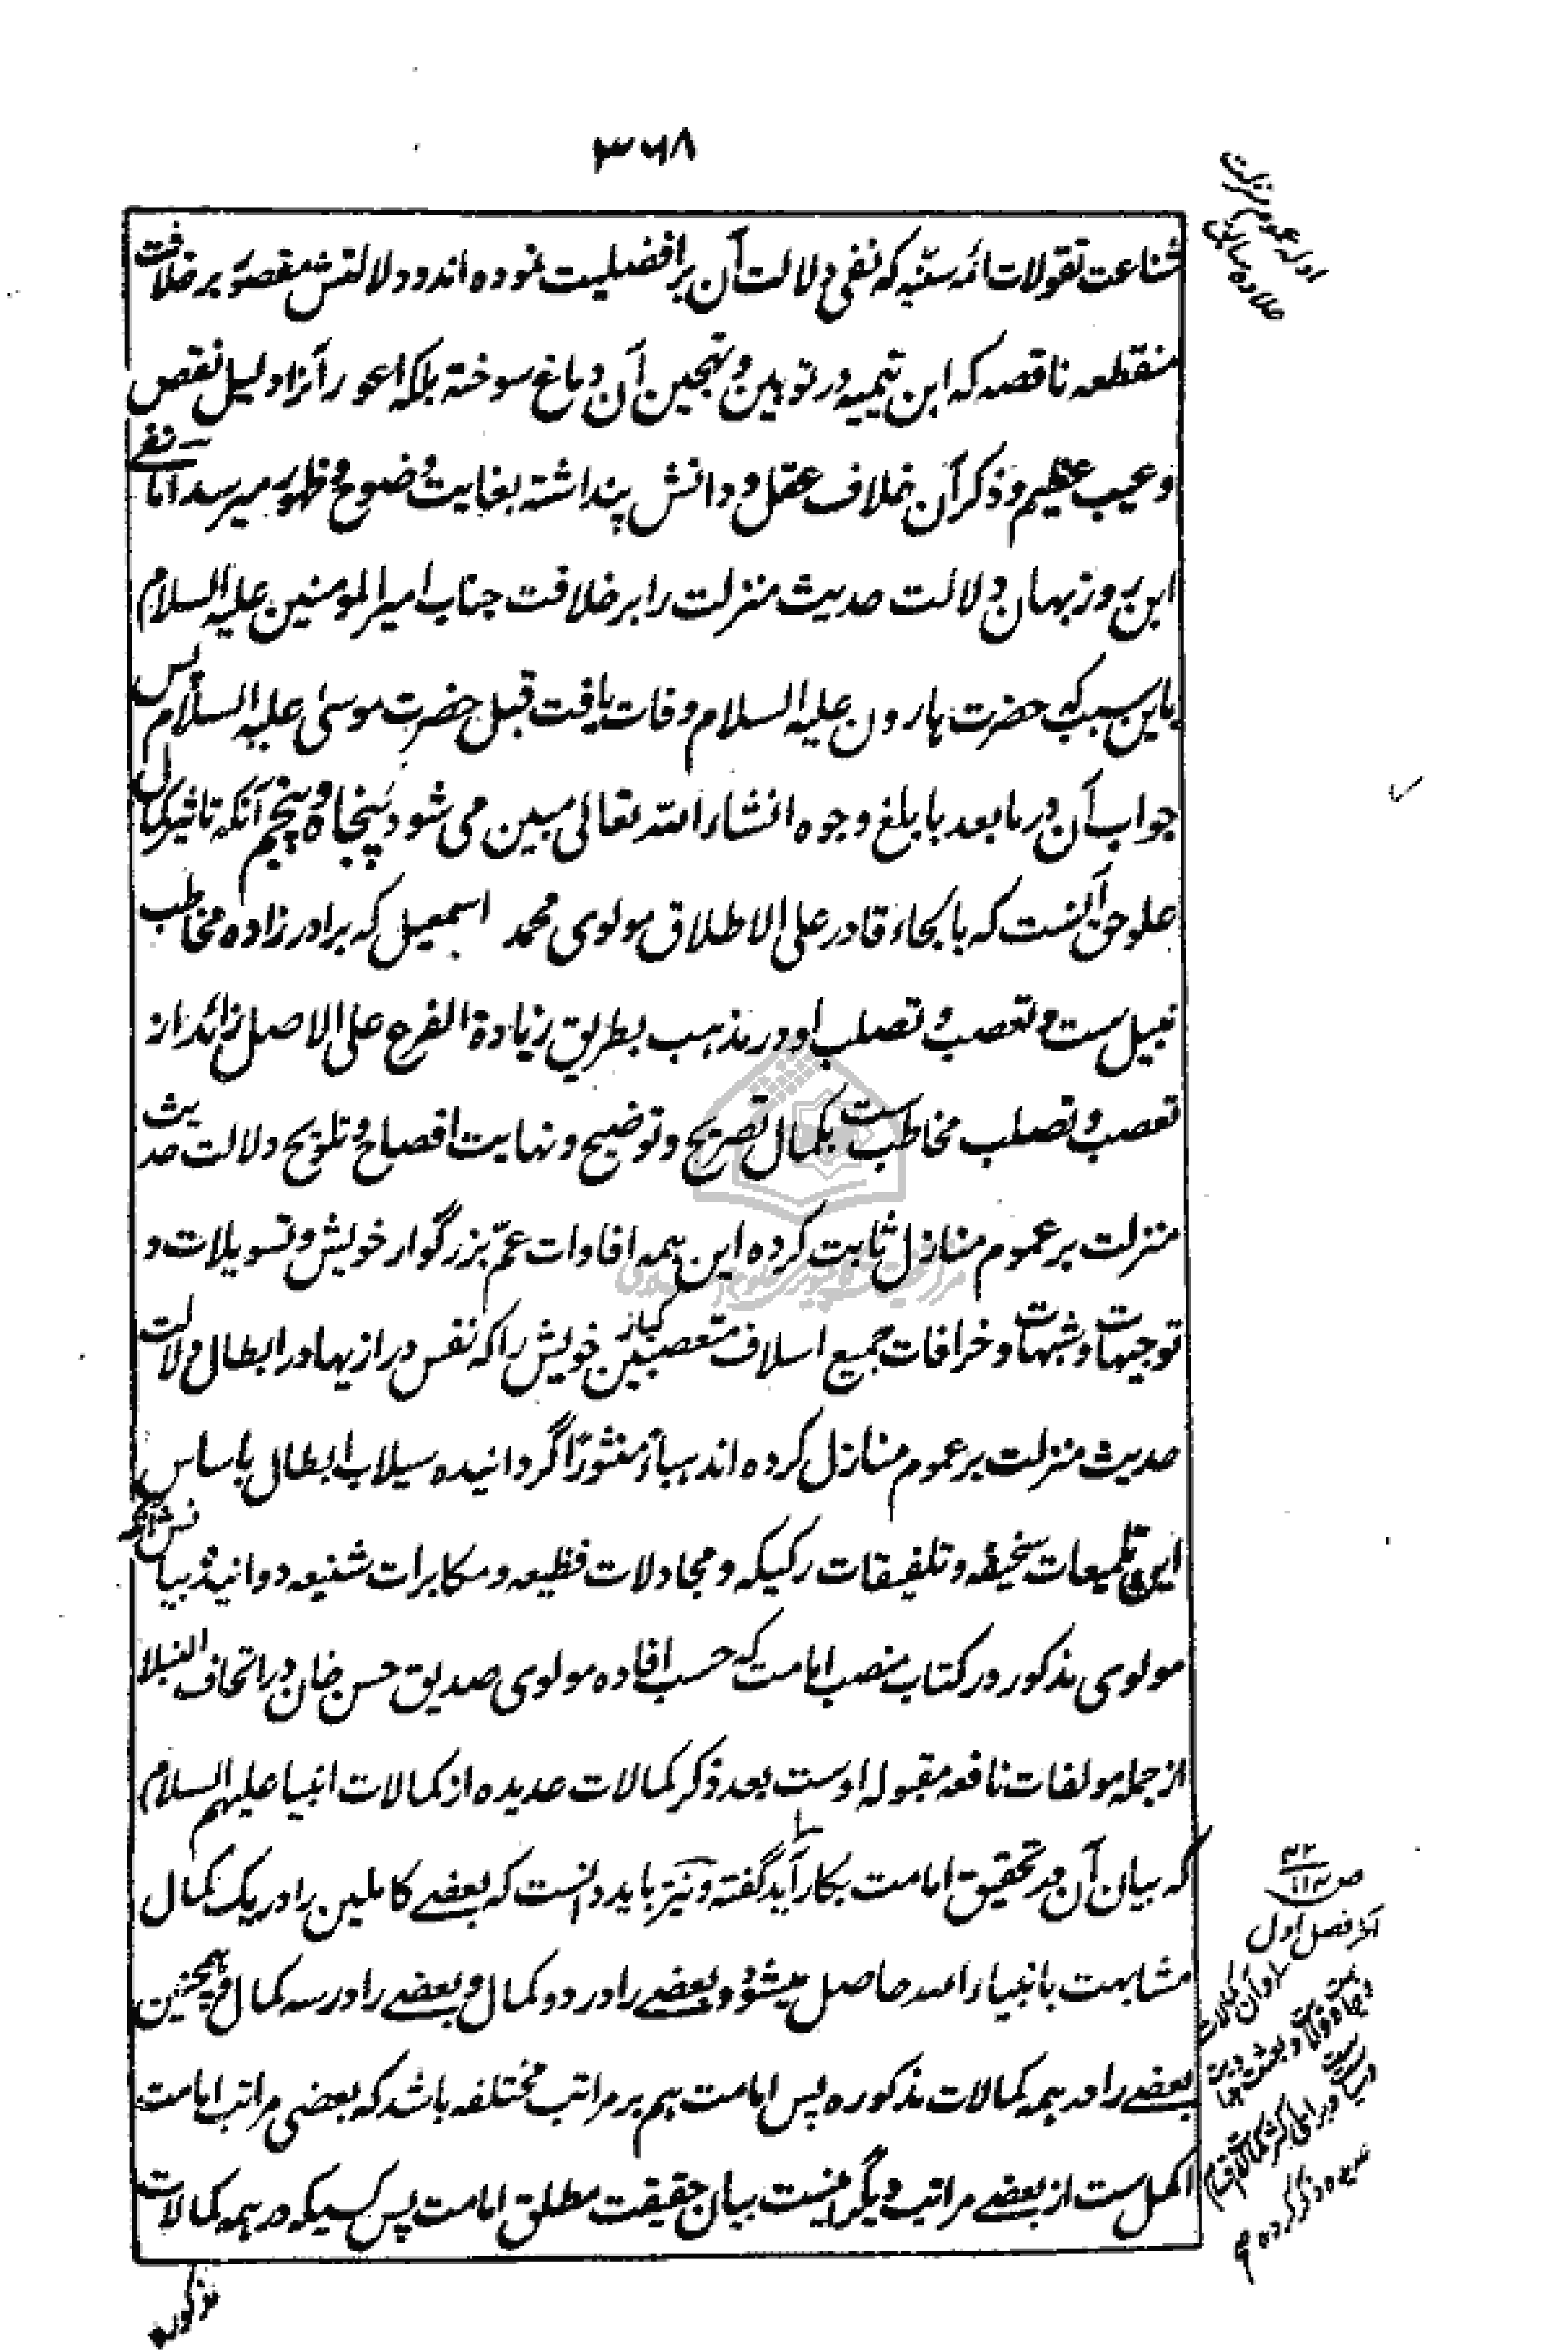 ۳۶۸
ادله عموم منزلت
علاوه سابق
شناعت تقولات ائمه سنّیه که نفی دلالت آن بر افضلیت نموده اند و دلالتش مقصور بر خلافت
منقطعه ناقصه که ابن تیمیه در توهین و تهجین آن دماغ سوخته بلکه اعور آنرا دلیل نقص
و عیب عظیم و ذکر آن خلاف عقل و دانش پنداشته بغایت وضوح و ظهور میرسد اما نفی
ابن روزبهان دلالت حدیث منزلت را بر خلافت جناب امیر المومنین علیه السلام
باین سبب که حضرت هارون علیه السلام وفات یافت قبل حضرت موسیٰ علیه السلام پس
جواب آن در ما بعد بابلغ وجوه انشاء الله تعالی مبین می شود پنجاه و پنجم آنکه تاثیر کمال
علو حق آنست که بالجاء قادر علی الاطلاق مولوی محمد اسمعیل که برادر زاده مخاطب
نبیل ست و تعصب و تصلب او در مذهب بطریق زیادة الفرع علی الاصل زائد از
تعصب و تصلب مخاطب ست بکمال تصریح و توضیح و نهایت افصاح و تلویح دلالت حدیث
منزلت بر عموم منازل ثابت کرده این همه افادات عمّ بزرگوار خویش و تسویلات و
توجیهات و شبهات و خرافات جمیع اسلاف متعصبین کبار خویش را که نفس درازیها در ابطال دلالت
حدیث منزلت بر عموم منازل کرده اند هباءً منثورًا گردانیده سیلاب ابطال باساس
این تلمیعات سخیفه و تلفیقات رکیکه و مجادلات فظیعه و مکابرات شنیعه دوانیده بیانش آنکه
مولوی مذکور در کتاب منصب امامت که حسب افاده مولوی صدیق حسن خان در اتحاف النبلا
از جمله مولفات نافعه مقبوله اوست بعد ذکر کمالات عدیده از کمالات انبیا علیهم السلام
که بیان آن در تحقیق امامت بکار آید گفته و نیز باید دانست که بعضے کاملین را در یک کمال
مشابهت بانبیاء الله حاصل میشود و بعضے را در دو کمال و بعضے را در سه کمال و همچنین
بعضے را در همه کمالات مذکوره پس امامت هم بر مراتب مختلفه باشد که بعضی مراتب امامت
اکمل ست از بعضے مراتب دیگر اینست بیان حقیقت مطلق امامت پس کسیکه در همه کمالات
آخر فصل اول
ذکر کرده
مذکوره